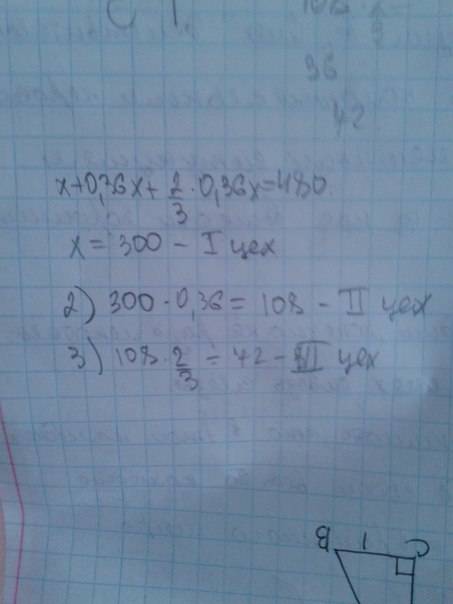 36
42
x+0,36x+ 2/3 · 0,36x=480
x = 300 - I цех
2) 300 · 0,36 = 108 - II цех
3) 108 · 2/3 = 42 - III цех
B 1 C